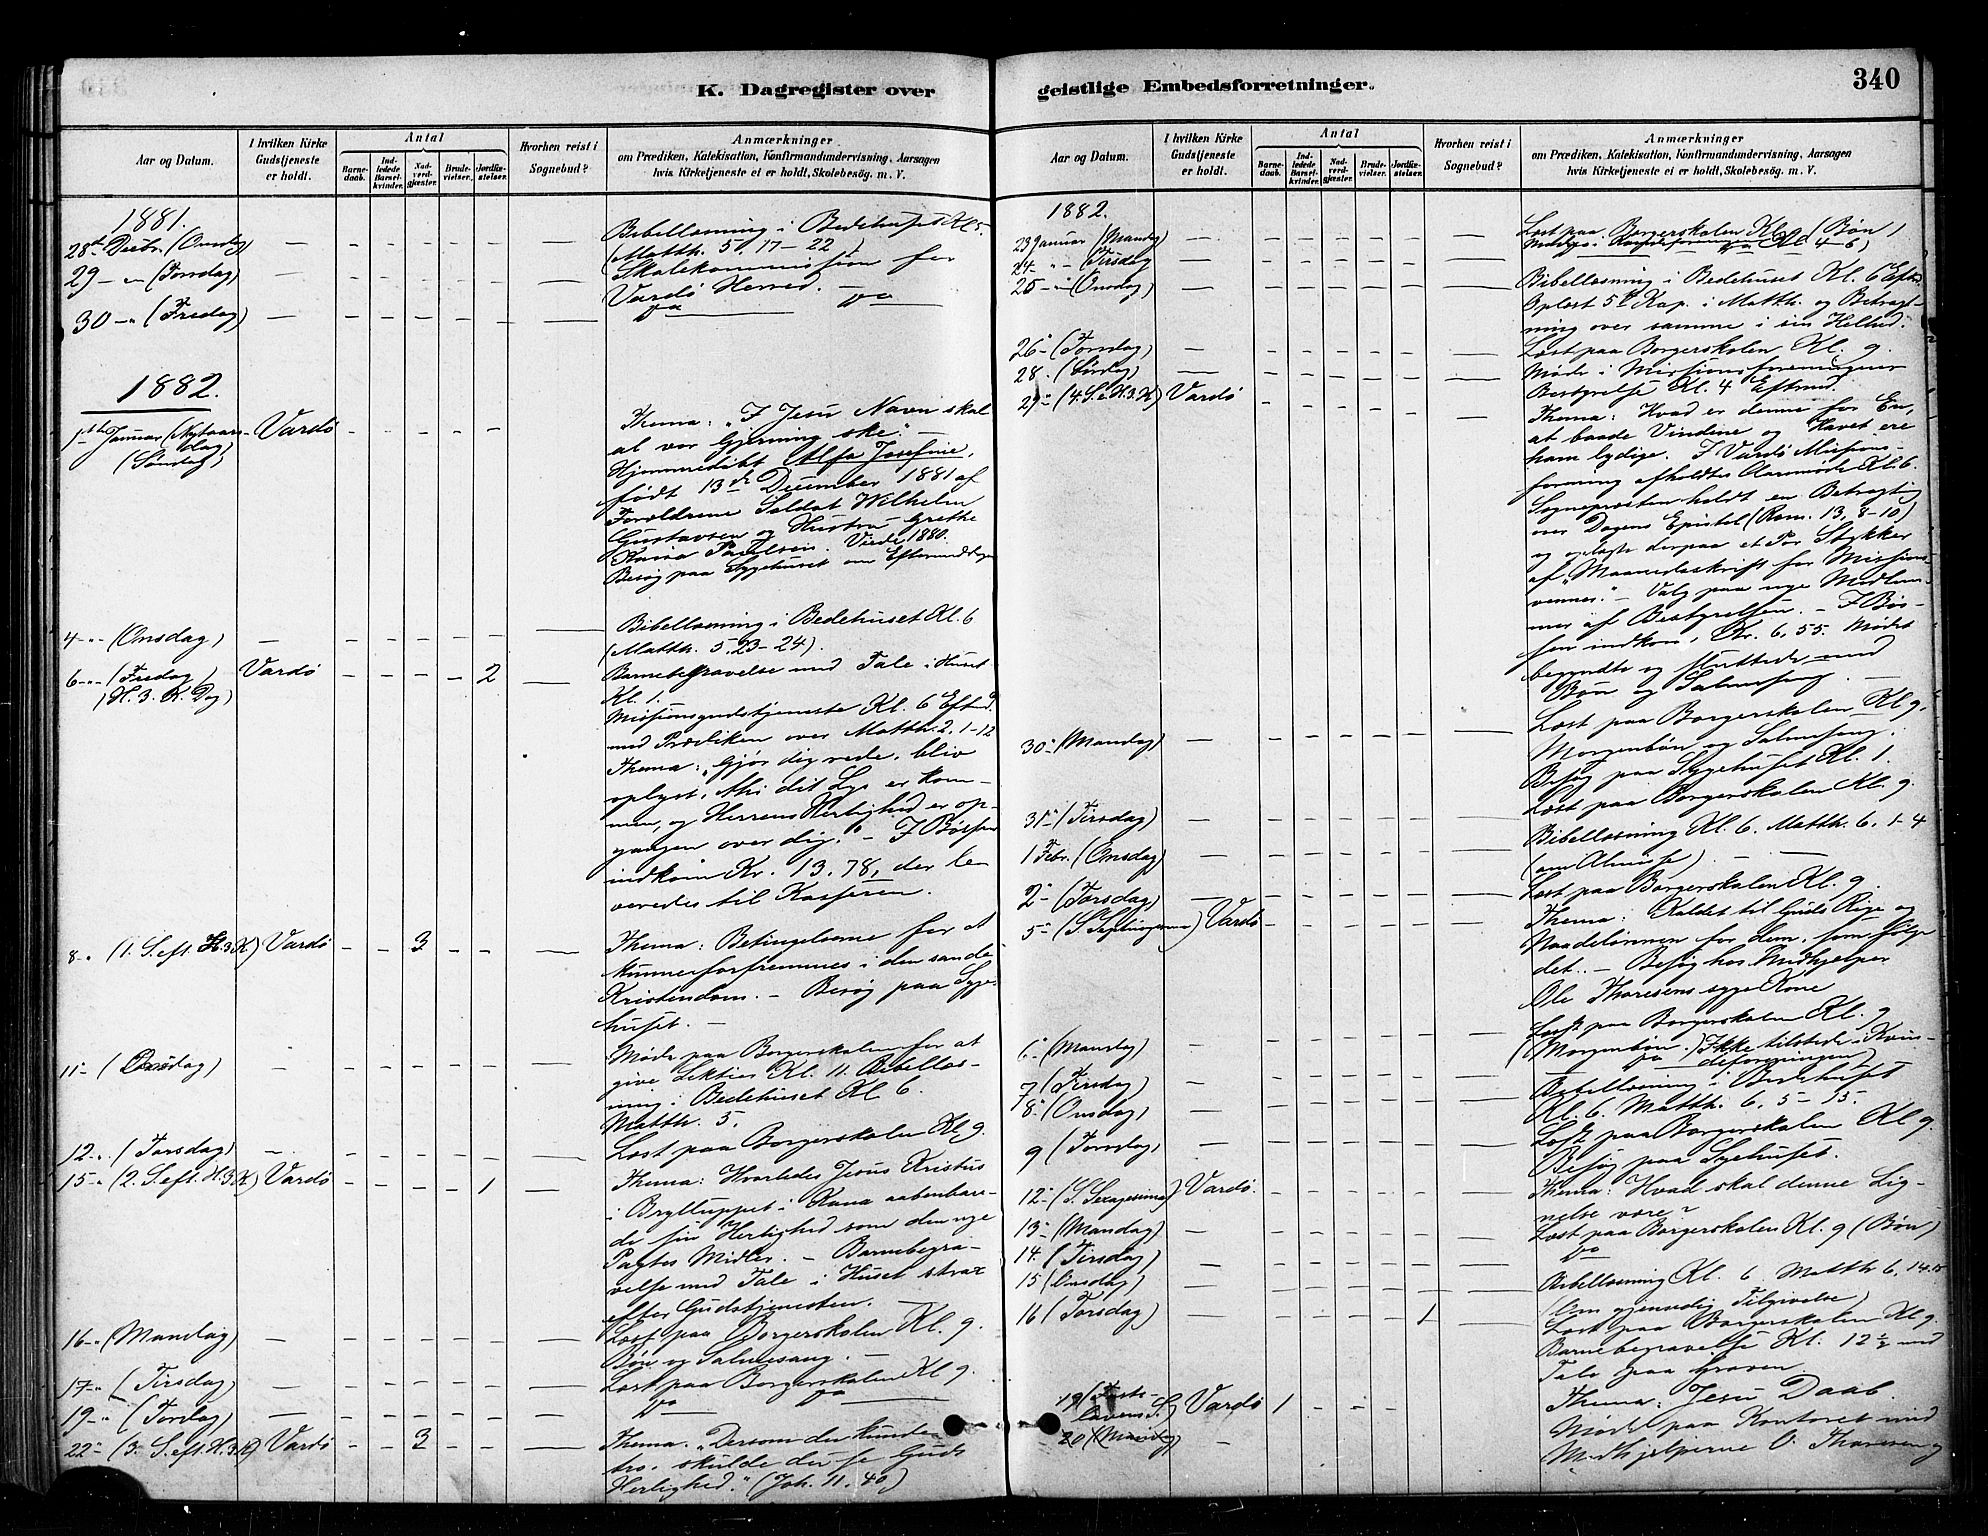 K. Dagregister over
Aar og Datum.
I hvilken Kirke Gudstjeneste er holdt.
Antal
Barne-daab.
Ind-ledede Barsel-kvinder.
Nad-verd-gjæster.
Brude-vielser.
Jordfæs-telser.
Hvorhen reist i Sognebud?
Anmærkninger
om Prædiken, Katekisation, Konfirmandundervisning, Aarsagen
hvis Kirketjeneste ei er holdt, Skolebesøg. m. V.
1881.
28de Decbr. (Onsdag) — Bibellæsning i Bedehuset Kl 5.
(Matth. 5, 17-22)
29 - (Torsdag) — Skolekommission for
Vardö Herred.
30 - (Fredag)
1882.
1ste Januar (Nytaars-
dag)
(Søndag)
Vardö
Thema: "I Jesu Navn skal
al vor Gjerning ske." —
Hjemmedøbt Alfa Josefine,
født 13de December 1881 af
Forældrene Soldat Wilhelm
Gustavsen og Hustru Grethe
Paulsen. Viede 1880.
Besøg paa Sygehuset om Eftermiddagen
4 - (Onsdag) — Bibellæsning i Bedehuset Kl. 6
(Matth. 5, 23-24).
6 - (Fredag)
(H. 3. K. Dag)
Vardö 2
Barnebegravelse med Tale i Huset
Kl. 1.
Missionsgudstjeneste Kl. 6 Efterm.
med Prædiken over Matth. 2, 1-12
Thema: "Gjør dig rede, bliv
oplyst, thi dit Lys er kom-
men, og Herrens Herlighed er op-
gangen over dig." — I Bøssen
indkom Kr. 13.78, der le-
veredes til Kassereren.
8 - (1. S. eft. H.3.K) Vardö 3
Thema: Betingelserne for at
kunne forfremmes i den sande
Kristendom. — Besøg paa Syge-
huset. —
11 - (Onsdag) — Møde paa Borgerskolen for at
give Lektier Kl. 11. Bibellæs-
ning i Bedehuset Kl 6.
Matth. 5.
12 - (Torsdag) — Læst paa Borgerskolen Kl 9.
15 - (2. S. eft. H.3.K) Vardö 1
Thema: Hvorledes Jesus Kristus
i Brylluppet i Kana aabenbare-
de sin Herlighed som den nye
Pagtes Midler. — Barnebegra-
velse med Tale i Huset strax
efter Gudstjenesten. —
16 - (Mandag) — Læst paa Borgerskolen Kl. 9.
Bøn og Salmesang. —
17 - (Tirsdag) — Læst paa Borgerskolen Kl 9.
19 - (Torsdag)
22 - (3. S. eft. H.3.K) Vardö 3
Thema. "Dersom du kunde
tro, skulde du se Guds
Herlighed." (Joh. 11. 40)
geistlige Embedsforretninger.
340
Aar og Datum.
I hvilken Kirke Gudstjeneste er holdt.
Antal
Barne-daab.
Ind-ledede Barsel-kvinder.
Nad-verd-gjæster.
Brude-vielser.
Jordfæs-telser.
Hvorhen reist i Sognebud?
Anmærkninger
om Prædiken, Katekisation, Konfirmandundervisning, Aarsagen
hvis Kirketjeneste ei er holdt, Skolebesøg. m. V.
1882.
23 Januar (Mandag) — Læst paa Borgerskolen Kl. 9 (Bøn)
24 - (Tirsdag)
25 - (Onsdag) — Bibellæsning i Bedehuset Kl. 6 Efterm.
Oplæst 5te Kap. i Matth. og Betragt-
ning over samme i sin Helhed.
26 - (Torsdag) — Læst paa Borgerskolen Kl. 9.
28. (Lørdag) — Møde i Missionsforeningens
Bestyrelse Kl. 4 Efterm.
29 - (4. S. e. H.3.K) Vardö
Thema: Hvad er denne for En,
at baade Vindene og Havet ere
ham lydige. I Vardö Missions-
forening afholdtes Aarsmøde Kl. 6.
Sognepresten holdt en Betragtning
over Dagens Epistel (Rom. 13, 8-10)
og oplæste derpaa et Par Stykker
af "Maanedsskrift for Missions-
venner." — Valg paa nye Medlem-
mer af Bestyrelsen. — I Bøs-
sen indkom Kr. 6,55. Mødet
begyndte og sluttede med
Bøn og Salmesang. —
30 - (Mandag) — Læst paa Borgerskolen Kl 9.
Morgenbøn og Salmesang.
Besøg paa Sygehuset Kl. 1.
31 - (Tirsdag) — Læst paa Borgerskolen Kl. 9.
1 Febr. (Onsdag) — Bibellæsning Kl. 6. Matth. 6, 1-4
(om Almisse) —
2 - (Torsdag) — Læst paa Borgerskolen Kl. 9.
5 - (S. Septuagesima) Vardö
Thema: Kaldet til Guds Rige og
Naadelønnen for dem, som følge
det. — Besøg hos Medhjælper
Ole Thoresens syge Kone
6 - (Mandag) — Læst paa Borgerskolen Kl. 9
(Morgenbøn.) Ikke tilstede i Kvin-
deforeningen
7 (Tirsdag)
8 - (Onsdag) — Bibellæsning i Bedehuset
Kl. 6. Matth. 6, 5-15.
9 (Torsdag) — Læst paa Borgerskolen Kl 9.
Besøg paa Sygehuset.
12 - (S. Sexagesima) Vardö.
Thema: Hvad skal denne Lig-
nelse være?
13 - (Mandag) — Læst paa Borgerskolen Kl. 9 (Bøn)
14. (Tirsdag)
15 (Onsdag) — Bibellæsning Kl. 6. Matth 6, 14.15
(Om gjensidig Tilgivelse)
16 (Torsdag) 1 — Læst paa Borgerskolen Kl 9.
Barnebegravelse Kl. 12½ med
Tale paa Graven
19 (Faste-
lavens S.) Vardö 1
Thema: Jesu Daab.
20 (Mandag) — Møde paa Kontoret med
Medhjelperne O. Thoresen og